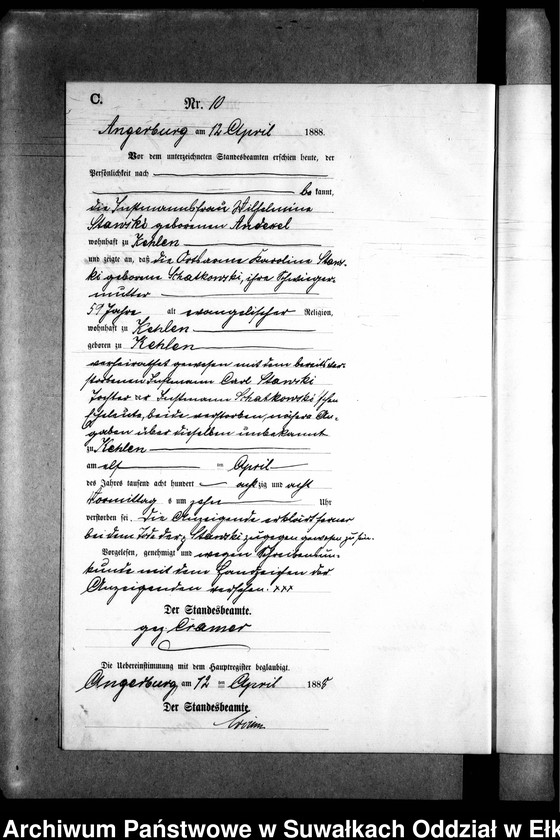 C.
Nr. 10
Angerburg am 12 April 1888.
Vor dem unterzeichneten Standesbeamten erschien heute, der
Persönlichkeit nach
be kannt,
die Instmannsfrau Wilhelmine
Stawski geborenen
wohnhaft zu Kehlen
und zeigte an, daß die Ortsarme Karoline Staws-
ki geborene Schatkowski, ihre Schwieger-
mutter
59 Jahre alt evangelischer Religion,
wohnhaft zu Kehlen
geboren zu Kehlen
verheirathet gewesen mit dem bereits ver-
storbenen Instmann Carl Stawski
Tochter der Instmann Schatkowski'schen
Eheleute, beide verstorben, nähere An-
gaben über dieselben unbekannt
zu Kehlen
am elf April
des Jahres tausend acht hundert achtzig und acht
Vormittag s um zehn Uhr
verstorben sei. Die Anzeigende erklärt ferner
bei dem Tode der Stawski zugegen gewesen zu sein.
Vorgelesen, genehmigt und wegen Schreibenun-
kunde mit dem Handzeichen der
Anzeigenden versehen. xxx
Der Standesbeamte.
gez. Cramer
Die Uebereinstimmung mit dem Hauptregister beglaubigt.
Angerburg am 12 ten April 1888
Der Standesbeamte.
Archiwum Państwowe w Suwałkach Oddział w Ełk